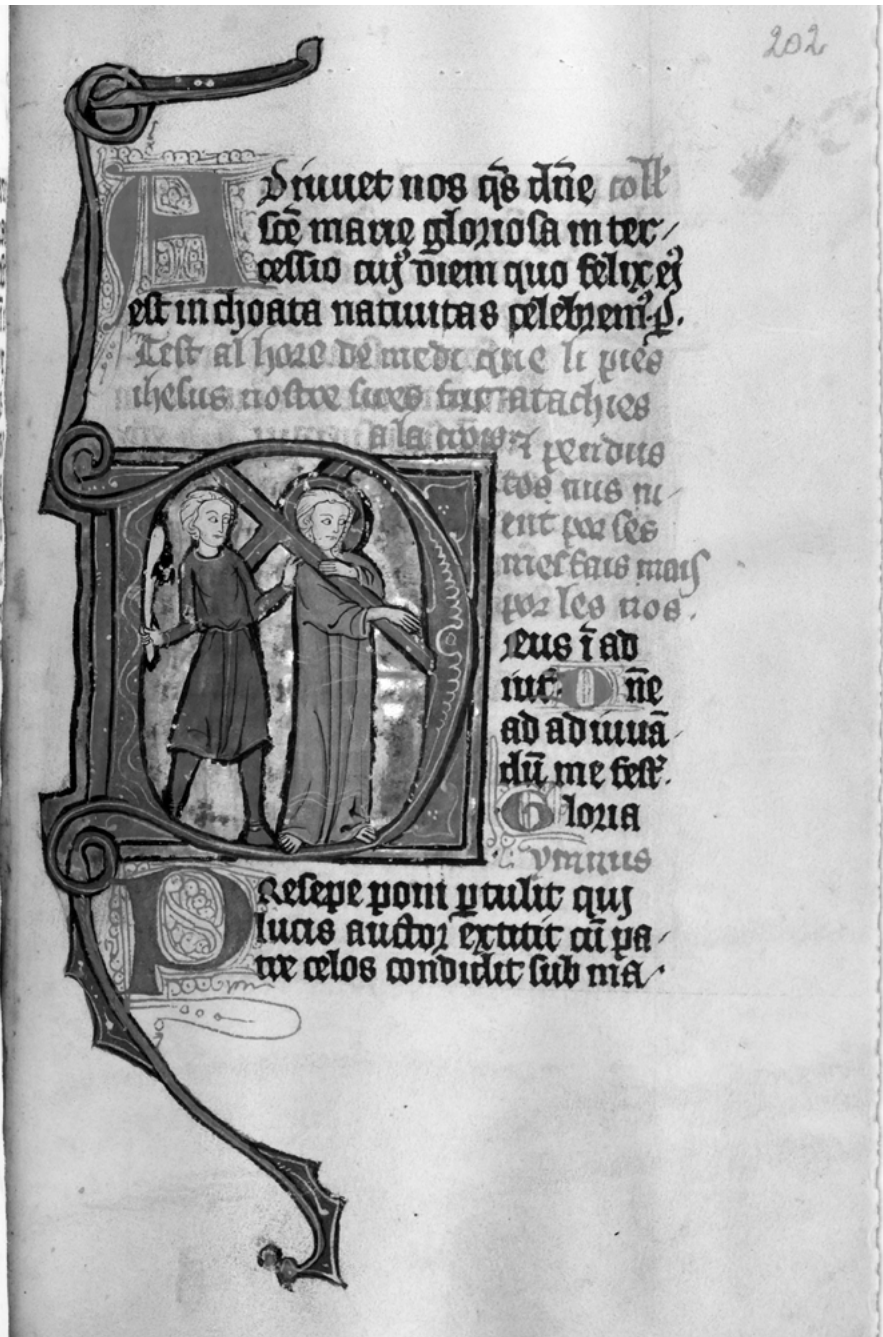 202
Adiuuet nos q̄s dn̄e coll'
sc̄e marie gloriosa inter/
cessio cuiꝰ diem quo felix eiꝰ
est inchoata natiuitas celebremꝰ. ꝑ.
Cest al hore de medi que li pies
ihesus nostre sires fut atachies
a la crois ⁊ pendus
ent por ses
mesfais mais
por les nos.
Deus ī ad
iut. Dn̄e
ad adiuuā/
dū me fest'.
Gloria
ymnus
Presepe poni ꝑtulit qui
lucis auctor extitit cū pa/
tre celos condidit sub ma/